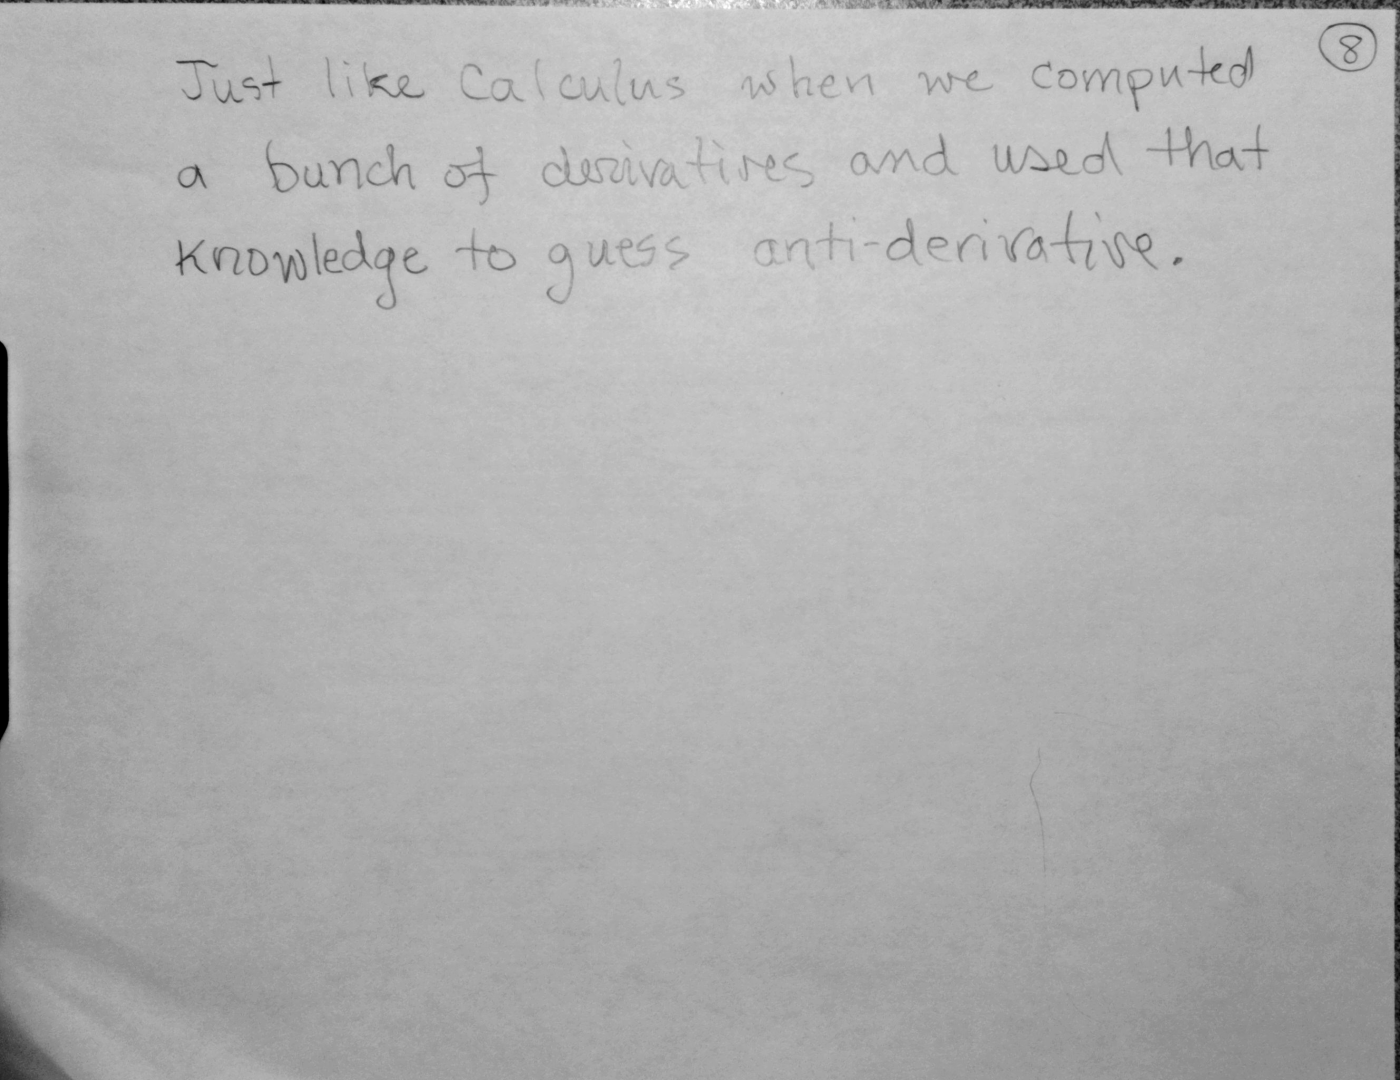 8
Just like Calculus when we computed
a bunch of derivatives and used that
knowledge to guess anti-derivative.